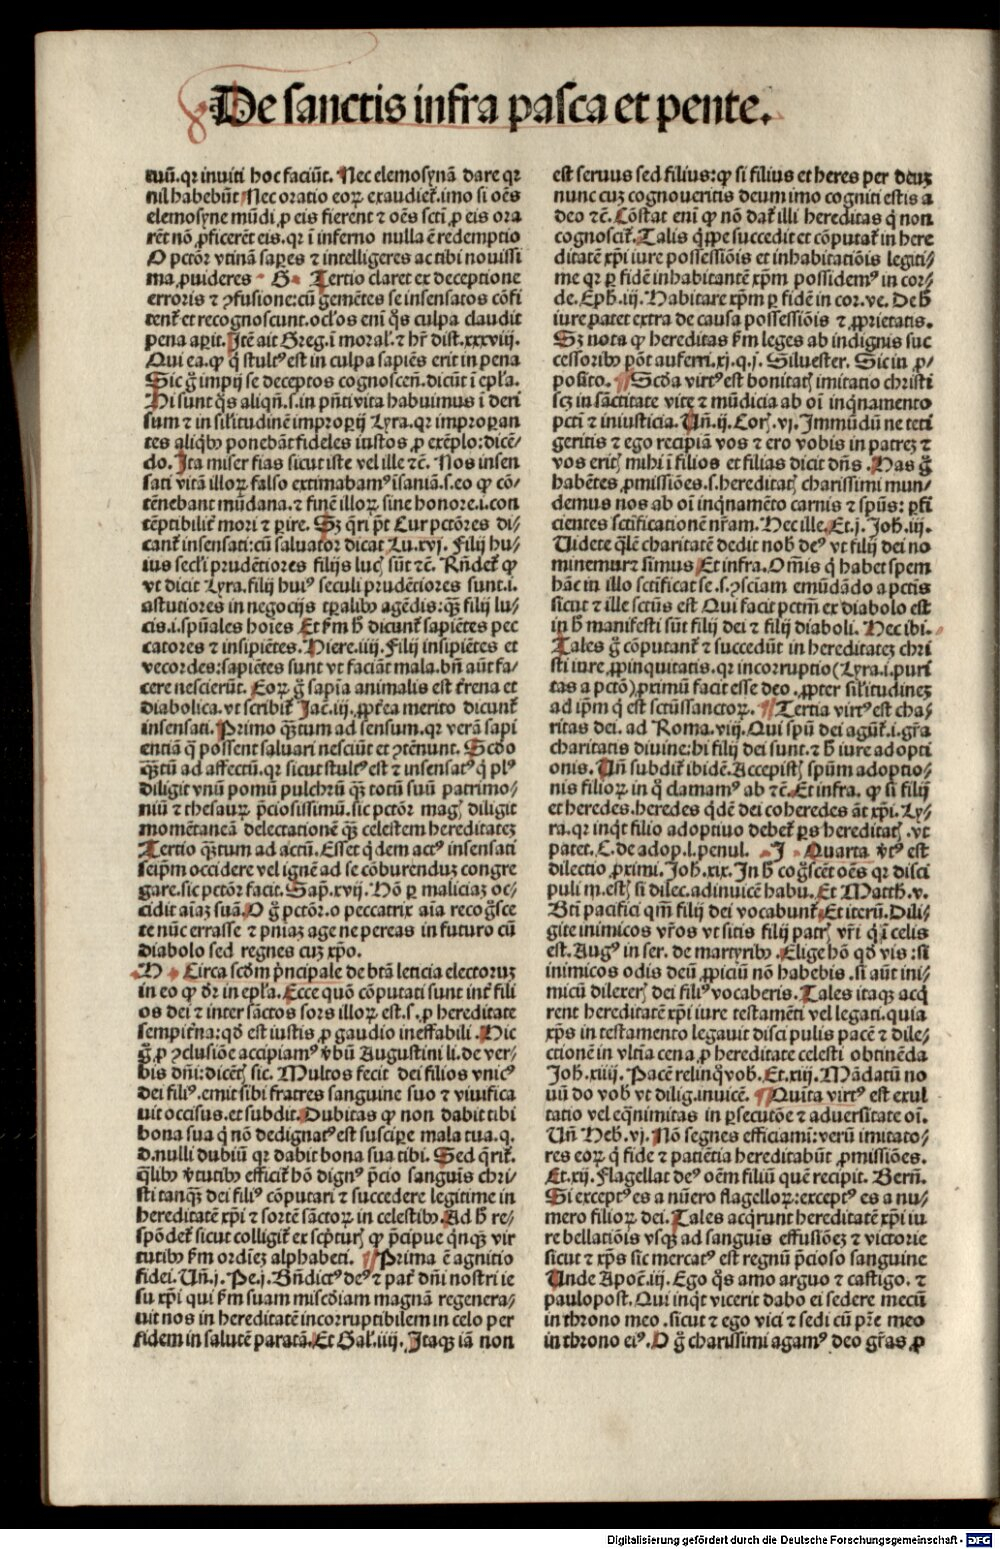 De sanctis infra pasca et pente.
tuũ.qr inuiti hoc faciũt. Nec elemosynã dare qr
nil habebũt Nec oratio eoꝝ exaudiet᷑.imo si oẽs
elemosyne mũdi ꝓ eis fierent ⁊ oẽs scti ꝓ eis ora
rẽt nõ ꝓficerẽt eis.qr ĩ inferno nulla ẽ redemptio
O pctõr vtinã saꝑes ⁊ intelligeres ac tibi nouissi
ma ꝓuideres G Tertio claret ex deceptione
erroris ⁊ ꝯfusione:cũ gemẽtes se insensatos cõfi
tent᷑ et recognoscunt.ocl'os eni q̃s culpa claudit
pena aꝑit. Itẽ ait Greg.ĩ moral'.⁊ hr̃ dist.xxxviij.
Qui ea.ꝙ q̃ stult⁹ est in culpa sapiẽs erit in pena
Sic g̃ impij se deceptos cognoscen̄.dicũt ĩ epl'a.
Hi sunt q̃s aliqñ.s.in pñti vita habuimus ĩ deri
sum ⁊ in sil'itudinẽ improperij Lyra.qr improꝑan
tes aliqbꝰ ponebãt fideles iustos ꝓ exẽplo:dicẽ/
do. Ita miser fias sicut iste vel ille ⁊c̃. Nos insen
sati vitã illoꝝ falso extimabam⁹ ĩsaniã.s.eo ꝙ cõ/
tẽnebant mũdana.⁊ finẽ illoꝝ sine honore.i.con
tẽptibilit᷑ mori ⁊ ꝑire. Sꝫ q̃ri põt Cur pctõres di/
cant᷑ insensati:cũ saluator dicat Lu.xvj. Filij hu/
ius secl'i prudẽtiores filijs lucꝭ sũt ⁊c̃. Rñdet᷑ ꝙ
vt dicit Lyra.filij hui⁹ seculi prudẽtiores sunt.i.
astutiores in negocijs tꝑalibꝰ agẽdis:qꝫ filij lu/
cis.i.spũales hoies Et ẜm h̃ dicunt᷑ sapiẽtes pec
catores ⁊ insipiẽtes. Hiere.iiij. Filij insipiẽtes et
vecordes:sapiẽtes sunt vt faciãt mala.bñ aũt fa/
cere nescierũt. Eoꝝ g̃ sapia animalis est t᷑rena et
diabolica.vt scribit᷑ Jac.iij.ꝓpt᷑ea merito dicunt᷑
insensati. Primo qꝫtum ad sensum.qr verã sapi
entiã q̃ possent saluari nesciũt et ꝯtẽnunt. Scdo
qꝫtũ ad affectũ.qr sicut stult⁹ est ⁊ insensat⁹ q̃ pl⁹
diligit vnũ pomũ pulchrũ qꝫ totũ suũ patrimo/
niũ ⁊ thesauꝝ p̃ciosissimũ.sic pctõr magꝭ diligit
momẽtaneã delectationẽ qꝫ celestem hereditatẽ
Tertio qꝫtum ad actũ. Esset q̃dem act⁹ insensati
seip̃m occidere vel ignẽ ad se cõburendũ congre
gare.sic pctõr facit. Sap̃.xvij. Hõ ꝑ maliciaꝫ oc/
cidit aĩaꝫ suã. O g̃ pctõr.o peccatrix aĩa recog̃sce
te nũc errasse ⁊ pñiaꝫ age ne pereas in futuro cũ
diabolo sed regnes cuꝫ xp̃o.
H Circa scdm p̃ncipale de bt̃a leticia electoruꝫ
in eo ꝙ dr̃ in epl'a. Ecce quõ cõputati sunt int᷑ fili
os dei ⁊ inter sãctos sors illoꝝ est.s.ꝓ hereditate
sempit᷑na:qd̃ est iustis ꝓ gaudio ineffabili. Hic
g̃ ꝓ ꝯclusiõe accipiam⁹ v̾bũ Augustini li.de ver/
bis dñi:dicẽtꝭ sic. Multos fecit dei filios vnic⁹
dei fili⁹.emit sibi fratres sanguine suo ⁊ viuifica
uit occisus.et subdit. Dubitas ꝙ non dabit tibi
bona sua q̃ nõ dedignat⁹ est susciꝑe mala tua.q.
d.nulli dubiũ qr dabit bona sua tibi. Sed q̃rit᷑.
q̃libꝰ v̾tutibꝰ efficit᷑ hõ dign⁹ p̃cio sanguis chri/
sti tanqꝫ dei fili⁹ cõputari ⁊ succedere legitime in
hereditatẽ xp̃i ⁊ sortẽ sãctoꝝ in celestibꝰ. Ad h̃ re/
spõdet᷑ sicut colligit᷑ ex scp̃turꝭ ꝙ p̃cipue q̃nqꝫ vir
tutibꝰ ẜm ordinẽ alphabeti. ¶ Prima ẽ agnitio
fidei. Vñ.j. Pe.j. Bñdict⁹ de⁹ ⁊ pat᷑ dñi nostri ie
su xp̃i qui ẜm suam miscdiam magnã regenera/
uit nos in hereditatẽ incorruptibilem in celo per
fidem in salutẽ paratã. Et Gal'.iiij. Itaqꝫ iã non
est seruus sed filius:ꝙ si filius et heres per deuꝫ
nunc cuꝫ cognoueritis deum imo cogniti estis a
deo ⁊c̃. Cõstat eni ꝙ nõ dat᷑ illi hereditas q̃ non
cognoscit᷑. Talis q̃ppe succedit et cõputat᷑ in here
ditatẽ xp̃i iure possessiõis et inhabitatiõis legiti/
me qr ꝑ fidẽ inhabitantẽ xp̃m possidem⁹ in cor/
de. Eph̃.iij. Habitare xp̃m ꝑ fidẽ in cor.ve. De h̃
iure patet extra de causa possessiõis ⁊ ꝓprietatis.
Sꝫ nota ꝙ hereditas ẜm leges ab indignis suc
cessoribꝰ põt auferri.xj.q.j. Siluester. Sic in ꝓ/
posito. ¶ Scda virt⁹ est bonitatꝭ imitatio christi
scꝫ in sãctitate vite ⁊ mũdicia ab oĩ inq̃namento
pcti ⁊ iniusticia. Vñ.ij. Corꝭ.vj. Immũdũ ne teti
geritis ⁊ ego recipiã vos ⁊ ero vobis in patreꝫ ⁊
vos eritꝭ mihi ĩ filios et filias dicit dñs. Has g̃
habẽtes ꝓmissiões.s.hereditatꝭ charissimi mun/
demus nos ab oĩ inq̃namẽto carnis ⁊ spũs: ꝑfi
cientes sctificationẽ nr̃am. Hec ille. Et.j. Joh.iij.
Videte q̃lẽ charitatẽ dedit nob̃ de⁹ vt filij dei no
minemur⁊ simus Et infra. Omĩs q̃ habet spem
hãc in illo sctificat se.s.ꝯsciam emũdãdo a pctis
sicut ⁊ ille sctũs est Qui facit pctm̃ ex diabolo est
in h̃ manifesti sũt filij dei ⁊ filij diaboli. Hec ibi.
Tales g̃ cõputant᷑ ⁊ succedũt in hereditateꝫ chri
sti iure ꝓpinquitatis.qr incorruptio(Lyra.i.puri
tas a pctõ)ꝓximũ facit esse deo.ꝓpter sil'itudineꝫ
ad ip̃m q̃ est sctũssanctoꝝ. ¶ Tertia virt⁹ est cha/
ritas dei. ad Roma.viij. Qui spũ dei agũt᷑.i.gr̃a
charitatis diuine:hi filij dei sunt.⁊ h̃ iure adopti
onis. Vñ subdit᷑ ibidẽ. Accepistꝭ spũm adoptio/
nis filioꝝ in q̃ clamam⁹ ab ⁊c̃. Et infra. ꝙ si filij
et heredes.heredes q̃dẽ dei coheredes ãt xp̃i. Ly/
ra.qr inq̃t filio adoptiuo debet᷑ ꝑs hereditatꝭ.vt
patet. C.de adop.l.penul. J Quarta v̾t⁹ est
dilectio ꝓximi. Joh.xix. In h̃ cog̃scẽt oẽs qr disci
puli m̃.estꝭ si dilec.adinuicẽ habu. Et Matth.v.
Bti pacifici qm̃ filij dei vocabunt᷑ Et iterũ. Dili/
gite inimicos vr̃os vt sitis filij patrꝭ vr̃i q̃ ĩ celis
est. Aug⁹ in ser. de martyribꝰ. Elige hõ qd̃ vis :si
inimicos odis deũ ꝓpiciũ nõ habebis .si aũt ini/
micũ dilexerꝭ dei fili⁹ vocaberis. Tales itaqꝫ acq̃
rent hereditatẽ xp̃i iure testamẽti vel legati.quia
xp̃s in testamento legauit disci pulis pacẽ ⁊ dile/
ctionẽ in vl'tia cena ꝓ hereditate celesti obtinẽda
Joh.xiiij. Pacẽ relinq̃ vob̃. Et.xiij. Mãdatũ no
uũ do vob̃ vt dilig.inuicẽ. ¶ Quĩta virt⁹ est exul
tatio vel eq̃nimitas in ꝑsecutõe ⁊ aduersitate oĩ.
Vñ Heb.vj. Nõ segnes efficiamĩ:verũ imitato/
res eoꝝ q̃ fide ⁊ patiẽtia hereditabũt ꝓmissiões.
Et.xij. Flagellat de⁹ oẽm filiũ quẽ recipit. Bern̄.
Si except⁹ es a nũero flagelloꝝ:except⁹ es a nu/
mero filioꝝ dei. Tales acq̃runt hereditatẽ xp̃i iu
re bellatiõis vsqꝫ ad sanguis effusiõeꝫ ⁊ victorie
sicut ⁊ xp̃s sic mercat⁹ est regnũ p̃cioso sanguine
Unde Apoc̃.iij. Ego q̃s amo arguo ⁊ castigo. ⁊
paulopost. Qui inq̃t vicerit dabo ei sedere mecũ
in throno meo .sicut ⁊ ego vici ⁊ sedi cũ pr̃e meo
in throno ei⁹. O g̃ charissimi agam⁹ deo gr̃as ꝓ
Digitalisierung gefördert durch die Deutsche Forschungsgemeinschaft - DFG